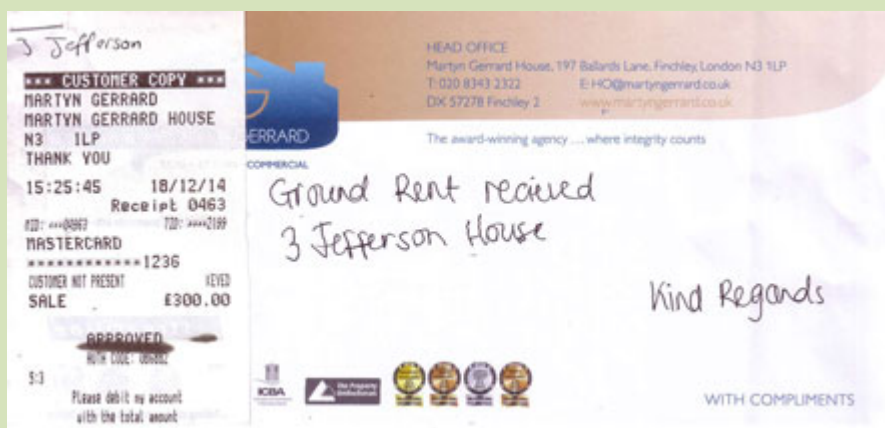 3 Jefferson
*** CUSTOMER COPY ***
MARTYN GERRARD
MARTYN GERRARD HOUSE
N3 1LP
THANK YOU
15:25:45 18/12/14
Receipt 0463
MID: ***04863 TID: ****2199
MASTERCARD
************1236
CUSTOMER NOT PRESENT KEYED
SALE £300.00
APPROVED
AUTH CODE:
5:3
Please debit my account
with the total amount
GERRARD
COMMERCIAL
HEAD OFFICE
Martyn Gerrard House, 197 Ballards Lane, Finchley, London N3 1LP
T: 020 8343 2322 E: HO@martyngerrard.co.uk
DX 57278 Finchley 2 www.martyngerrard.co.uk
The award-winning agency ... where integrity counts
Ground Rent recieved
3 Jefferson House
Kind Regards
ICBA
The Property
Ombudsman
WITH COMPLIMENTS